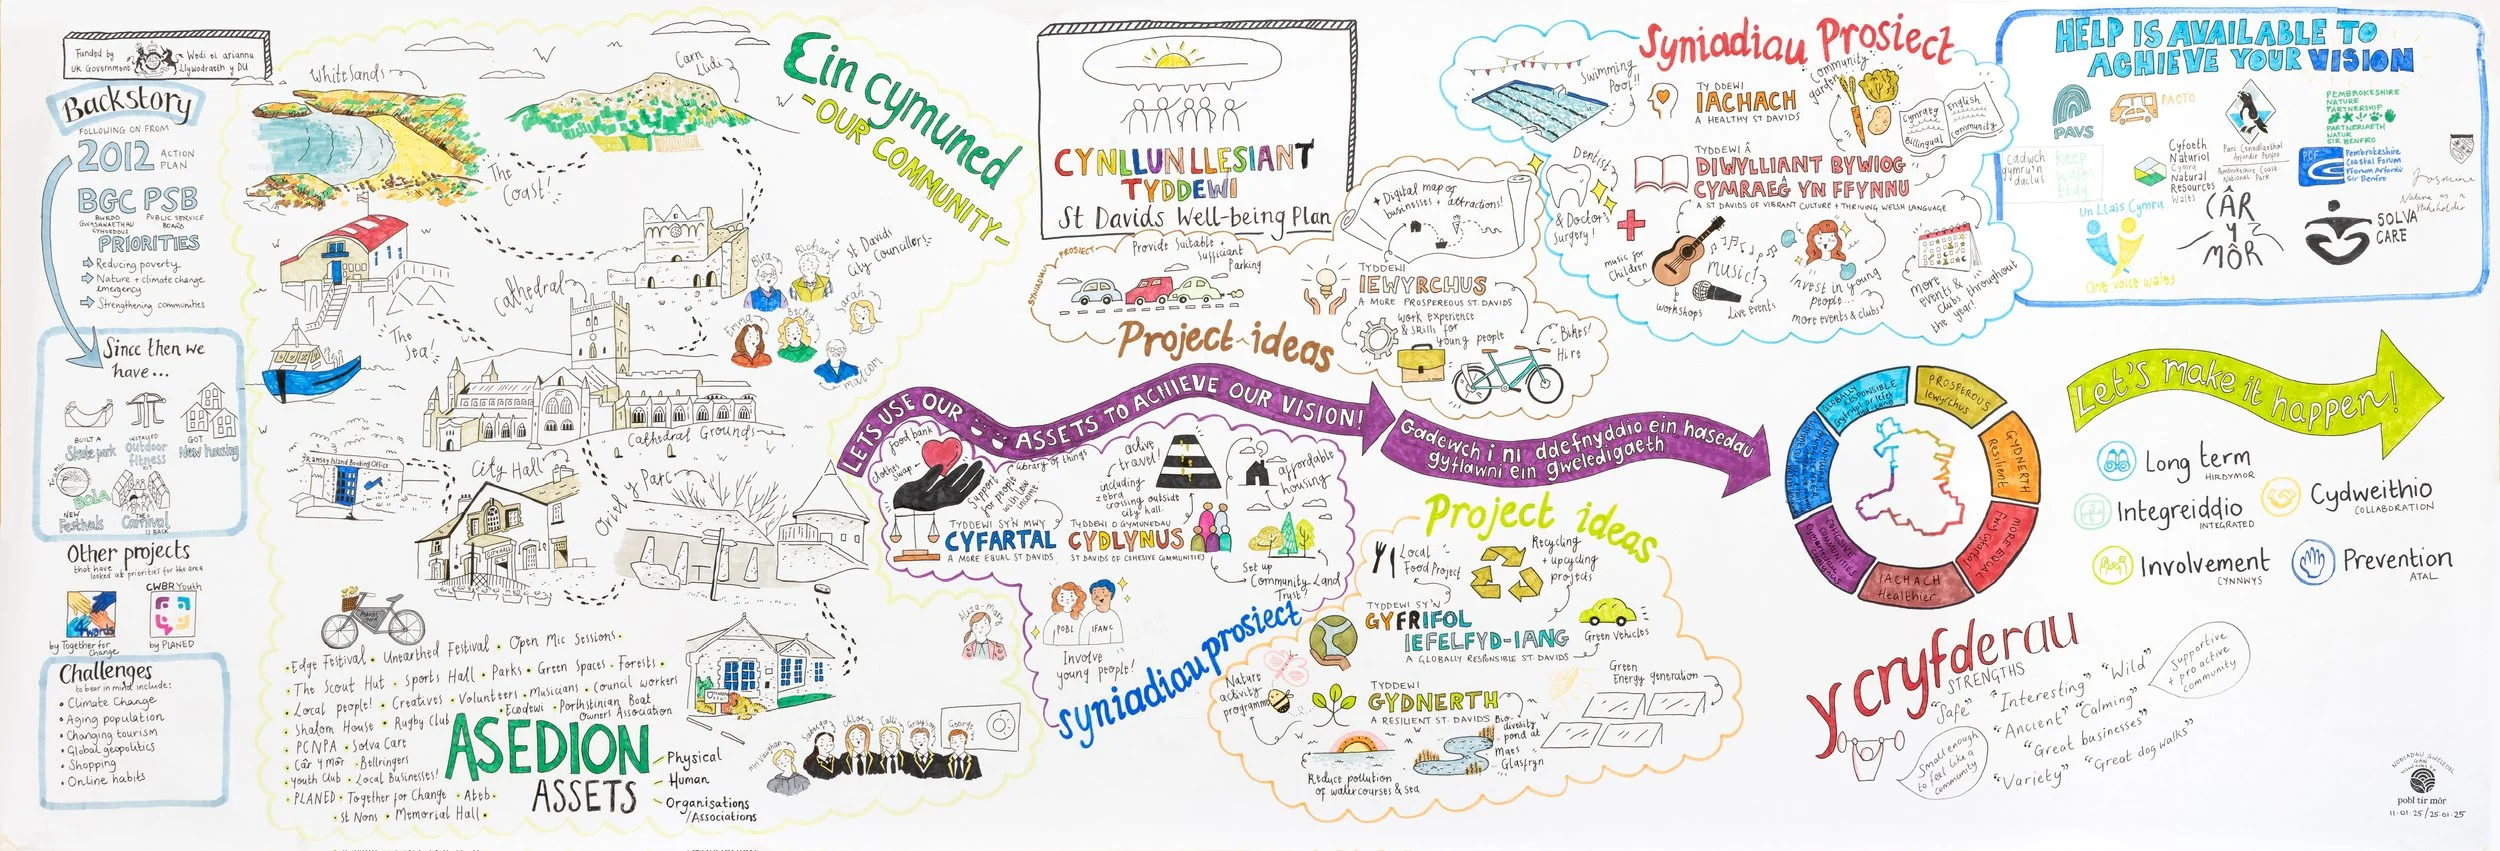 Funded by
UK Government
Wedi ei ariannu
Llywodraeth y DU
Backstory
FOLLOWING ON FROM
2012 ACTION
PLAN
BGC PSB
BWRDD
GWASANAETHAU
CYHOEDDUS
PUBLIC SERVICE
BOARD
PRIORITIES
Reducing poverty
Nature + climate change
emergency
Strengthening communities
Since then we
have...
BUILT A
Skate park
INSTALLED
Outdoor
fitness
KIT
GOT
New housing
BOLA
NEW
Festivals
THE
Carnival
IS BACK
Other projects
that have
looked at priorities for the area
4 words
by Together for
Change
CWBR Youth
by PLANED
Challenges
to bear in mind include:
• Climate Change
• Aging population
• Changing tourism
• Global geopolitics
• Shopping
• Online habits
Whitesands
Carn
Llidi
Ein cymuned
- OUR COMMUNITY -
The
Coast!
Cathedral
The
Sea!
Bira
Richard
St Davids
City Councillors
Emma
Becky
Sarah
Malcom
Cathedral Grounds
Ramsey Island Booking Office
City Hall
CITY HALL
Oriel y Parc
• Edge Festival • Unearthed Festival • Open Mic Sessions •
• The Scout Hut • Sports Hall • Parks • Green Spaces • Forests •
• Local people! • Creatives • Volunteers • Musicians • Council workers
• Shalom House • Rugby Club • Ecodewi • Porthstinian Boat
Owners Association
• PCNPA • Solva Care
• Câr y Môr • Bellringers
• Youth Club • Local Businesses!
• PLANED • Together for Change • Ateb •
• St Nons • Memorial Hall •
ASEDION
ASSETS
Physical
Human
Organisations
/Associations
Chloe
Calli
Grayson
George
Aliza-Mary
CYNLLUN LLESIANT
TYDDEWI
St Davids Well-being Plan
SYNIADAU
PROSIECT
Provide Suitable +
Sufficient
Parking
Project ideas
Digital map of
businesses + attractions!
TYDDEWI
IEWYRCHUS
A MORE PROSPEREOUS ST. DAVIDS
work experience
& skills for
young people
Bikes!
Hire
LETS USE OUR ASSETS TO ACHIEVE OUR VISION!
Gadewch i ni ddefnyddio ein hasedau
gyflawni ein gweledigaeth
food bank
clothes
swap
Library of things
Support
for people
with low
income
TYDDEWI SY'N MWY
CYFARTAL
A MORE EQUAL ST DAVIDS
active
travel!
including
zebra
crossing outside
city hall.
TYDDEWI O GYMUNEDAU
CYDLYNUS
ST DAVIDS OF COHESIVE COMMUNITIES
affordable
housing
Set up
Community Land
Trust?
POBL
IFANC
Involve
young people!
syniadiau prosiect
Project ideas
Local
Food Project
Recycling
+ upcycling
projects
TYDDEWI SY'N
GYFRIFOL
IEFELFYD-IANG
A GLOBALLY RESPONSIBLE ST. DAVIDS
Green Vehicles
Nature
activity
programme
TYDDEWI
GYDNERTH
A RESILIENT ST. DAVIDS
Green
Energy generation
Bio-
diversity
pond at
Maes
Glasfryn
Reduce pollution
of watercourses & sea
Syniadiau Prosiect
Swimming
Pool!!
TYDDEWI
IACHACH
A HEALTHY ST DAVIDS
Community
garden
Cymraeg
Billingual
English
community
Dentist
& Doctors
Surgery!
TYDDEWI Â
DIWYLLIANT BYWIOG
CYMRAEG YN FFYNNU
A ST DAVIDS OF VIBRANT CULTURE + THRIVING WELSH LANGUAGE
music for
Children
workshops
MUSIC!
Live events
Invest in young
people...
more events & clubs
more
events &
clubs throughout
the year!
HELP IS AVAILABLE TO
ACHIEVE YOUR VISION
PAVS
PACTO
Parc Cenedlaethol
Arfordir Penfro
Pembrokeshire Coast
National Park
PEMBROKESHIRE
NATURE
PARTNERSHIP
PARTNERIAETH
NATUR
SIR BENFRO
Cadwch
gymru'n
daclus
Keep
wales
tidy
Cyfoeth
Naturiol
Cymru
Natural
Resources
Wales
PCF
Pembrokeshire
Coastal Forum
Fforwm Arfordir
Sir Benfro
Jasmine
Nature as a
stakeholder
Un Llais Cymru
One voice wales
CÂR
Y
MÔR
SOLVA
CARE
GLOBALLY
RESPONSIBLE
PROSPEROUS
Iewyrchus
GYDNERTH
Resilient
MORE EQUAL
Fwy Cyfartal
IACHACH
Healthier
COHESIVE
COMMUNITIES
Let's make it happen!
Long term
HIRDYMOR
Integreiddio
INTEGRATED
Cydweithio
COLLABORATION
Involvement
CYNNWYS
Prevention
ATAL
Y cryfderau
STRENGTHS
"Safe"
"Interesting"
"Wild"
"Ancient"
"Calming"
"Great businesses"
"Variety"
"Great dog walks"
Supportive
+ pro active
community
Small enough
to feel like a
community
pobl tir môr
11·01·25/25·01·25